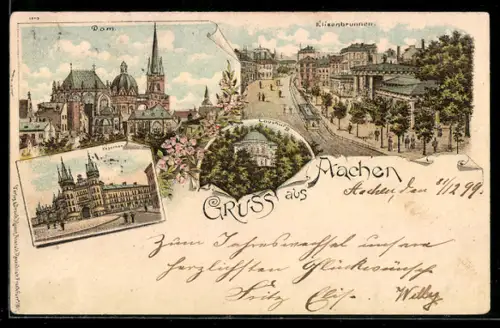 Dom
Elisenbrunnen
GRUSS aus Aachen
Aachen, den 31/12 99
Zum Jahreswechsel unsere
herzlichsten Glückwünsche
Fritz Elis. Willy